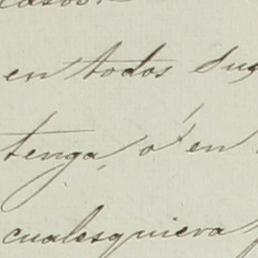 en todos sus
tenga, ó en
cualesquiera